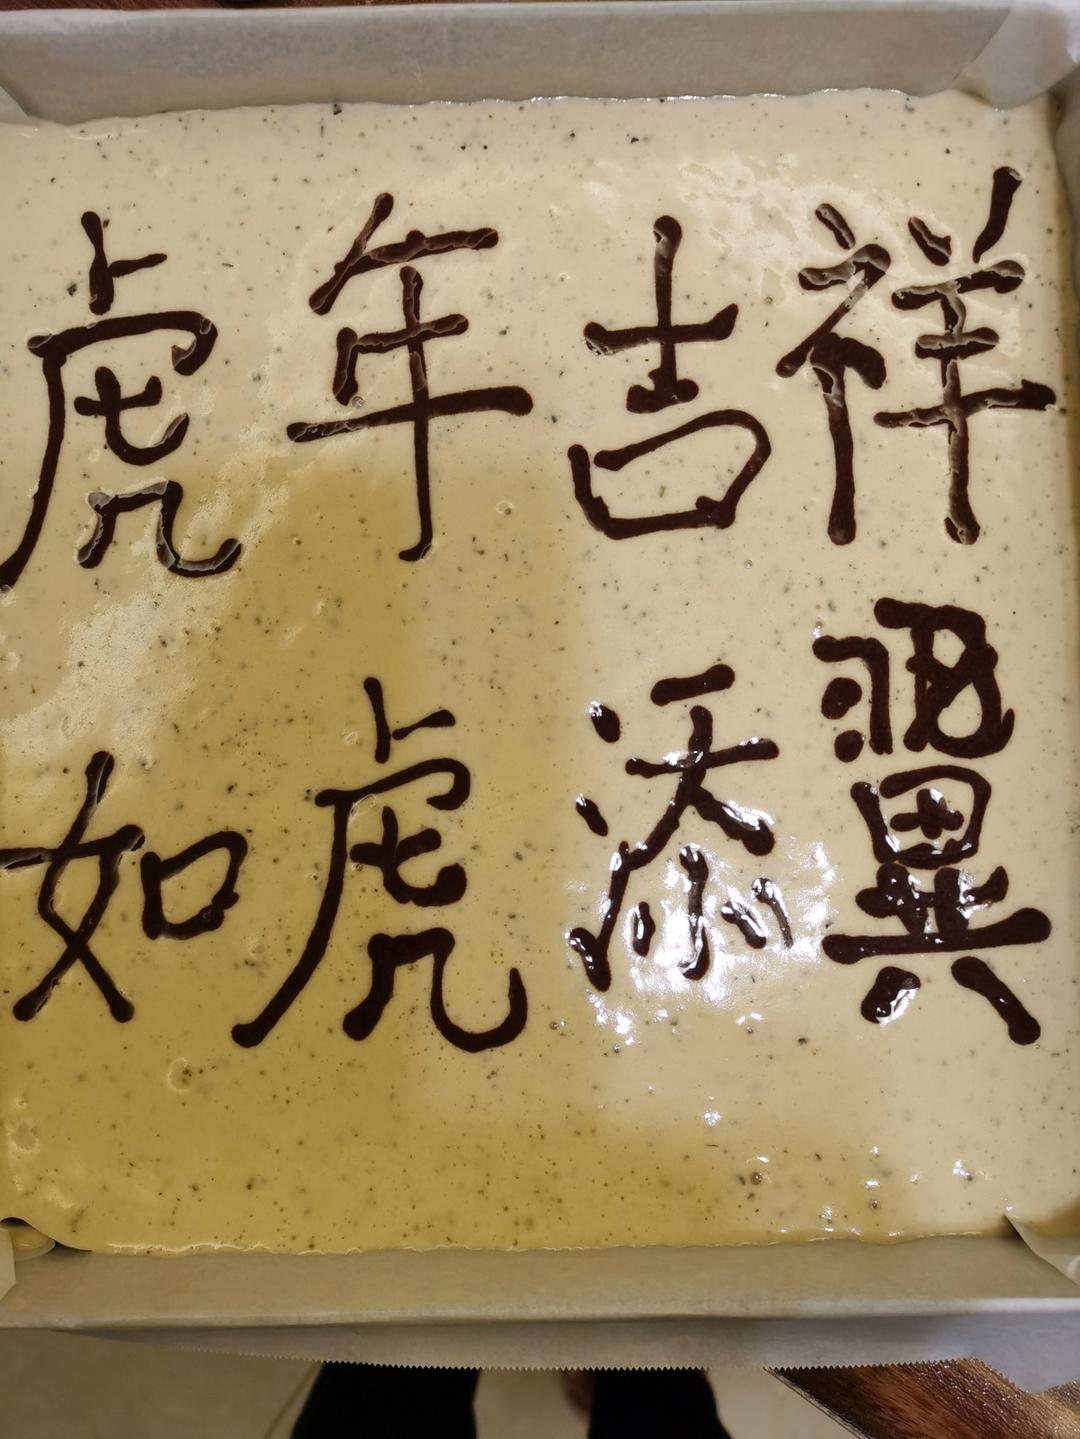 虎年吉祥
如虎添翼